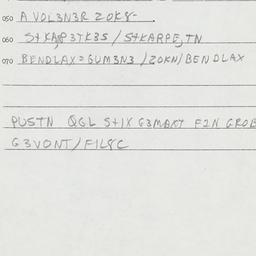 050 A VOL3N3R ZOK8-.
060 S+KAP3TK3S / S+KARPE,TN
070 BENDLAX=GUM3N3 / ZOKN/BENDLAX
PUSTN QGL S+IX G3MAKT F2N GROB
G3VONT/FIL8C